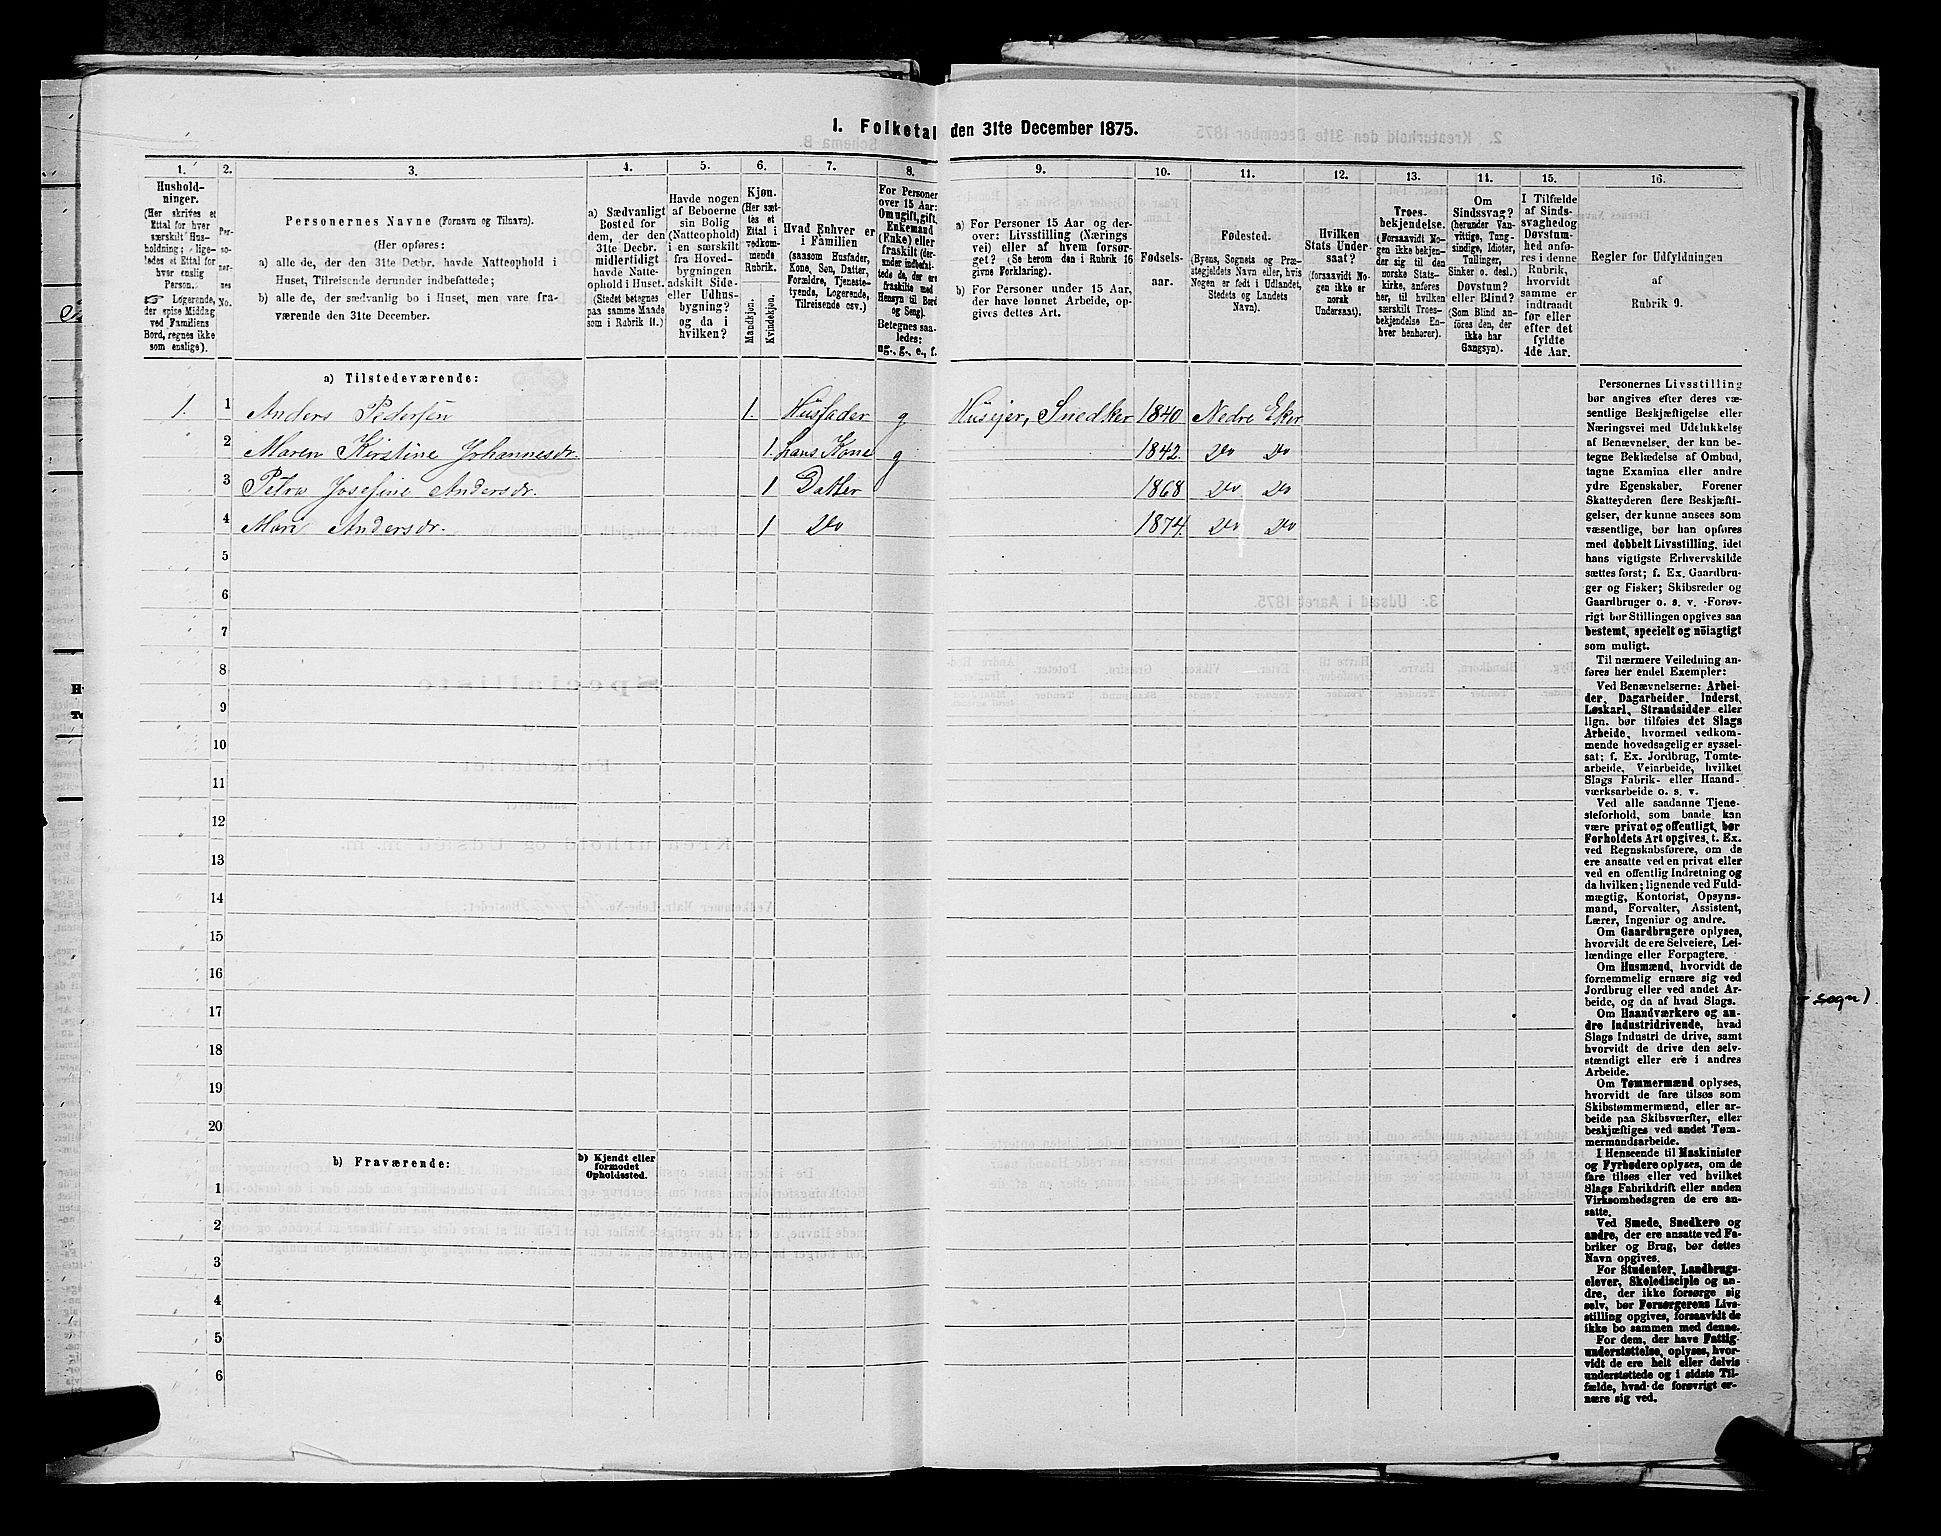 1. Folketal den 31te December 1875.
1. 2. 3. 4. 5. 6. 7. 8. 9. 10. 11. 12. 13. 14. 15. 16.
Hushold-
ninger.
(Her skrives et
Ettal for hver
særskilt Hus-
holdning; lige-
ledes et Ettal for
hver enslig
Person.
☞ Logerende,
der spise Middag
ved Familiens
Bord, regnes ikke
som enslige).
Per-
so-
ner-
nes
No.
Personernes Navne (Fornavn og Tilnavn).
(Her opføres:
a) alle de, der den 31te Decbr. havde Natteophold i
Huset, Tilreisende derunder indbefattede;
b) alle de, der sædvanlig bo i Huset, men vare fra-
værende den 31te December.
a) Sædvanligt
Bosted for
dem, der den
31te Decbr.
midlertidigt
havde Natte-
ophold i Huset.
(Stedet betegnes
paa samme Maade
som i Rubrik 11.)
Havde nogen
af Beboerne
sin Bolig
(Natteophold)
i en særskilt
fra Hoved-
bygningen
adskilt Side-
eller Udhus-
bygning?
og da i
hvilken?
Kjøn.
(Her sæt-
tes et
Ettal i
vedkom-
mende
Rubrik.
Mandkjøn.
Kvindekjøn.
Hvad Enhver er
i Familien
(saasom Husfader,
Kone, Søn, Datter,
Forældre, Tjeneste-
tyende, Logerende,
Tilreisende csv.)
For Personer
over 15 Aar:
Om ugift, gift,
Enkemand
(Enke) eller
fraskilt (der-
under indbefat-
tede de, der ere
fraskilte med
Hensyn til Bord
og Seng).
Betegnes saa-
ledes:
ug., g., e., f.
a) For Personer 15 Aar og der-
over: Livsstilling (Nærings
vei) eller af hvem forsør-
get? (Se herom den i Rubrik 16
givne Forklaring).
b) For Personer under 15 Aar,
der have lønnet Arbeide, op-
gives dettes Art.
Fødsels-
aar.
Fødested.
(Byens, Sognets og Præ-
stegjeldets Navn eller, hvis
Nogen er født i Udlandet,
Stedets og Landets
Navn).
Hvilken
Stats Under-
saat?
(forsaavidt No-
gen ikke er
norsk
Undersaat).
Troes-
bekjendelse.
(Forsaavidt No-
gen ikke bekjen-
der sig til den
norske Stats-
kirke, anføres
her, til hvilken
særskilt Troes-
bekjendelse En-
hver henhører).
Om
Sindssvag?
(herunder Van-
vittige, Tung-
sindige, Idioter,
Tullinger,
Sinker o. desl.)
Døvstum?
eller Blind?
(Som Blind an-
føres den, der
ikke har
Gangsyn).
I Tilfælde
af Sinds-
svaghed og
Døvstum-
hed anfø-
res i denne
Rubrik,
hvorvidt
samme er
indtraadt
før eller
efter det
fyldte
4de Aar.
Regler for Udfyldningen
af
Rubrik 9.
a) Tilstedeværende:
1. 1 Anders Pedersen 1. Husfader g Huseier, Snedker 1840 Nedre Eker
2 Maren Kirstine Johannesdr. 1. hans Kone g 1842. Do Do
3 Petra Josefine Andersdr. 1 Datter 1868 Do Do
4 Mari Andersdr. 1 Do 1874. Do Do
5
6
7
8
9
10
11
12
13
14
15
16
17
18
19
20
b) Fraværende:
b) Kjendt eller
formodet
Opholdssted.
1
2
3
4
5
6
Personernes Livsstilling
bør angives efter deres væ-
sentlige Beskjæftigelse eller
Næringsvei med Udelukkelse
af Benævnelser, der kun be-
tegne Beklædelse af Ombud,
tagne Examina eller andre
ydre Egenskaber. Forener
Skatteyderen flere Beskjæfti-
gelser, der kunne ansees som
væsentlige, bør han opføres
med dobbelt Livsstilling, idet
hans vigtigste Erhvervskilde
sættes først; f. Ex. Gaardbru-
ger og Fisker; Skibsreder og
Gaardbruger o. s. v. Forøv-
rigt bør Stillingen opgives saa
bestemt, specielt og nöiagtigt
som muligt.
Til nærmere Veiledning an-
føres her endel Exempler:
Ved Benævnelserne: Arbei-
der, Dagarbeider, Inderst,
Løskarl, Strandsidder eller
lign. bør tilføies det Slags
Arbeide, hvormed vedkom-
mende hovedsagelig er syssel-
sat; f. Ex. Jordbrug, Tomte-
arbeide, Veiarbeide, hvilket
Slags Fabrik- eller Haand-
værksarbeide o. s. v.
Ved alle saadanne Tjene-
steforhold, som baade kan
være privat og offentligt, bør
Forholdets Art opgives, t. Ex.
ved Regnskabsførere, om de
ere ansatte ved en privat eller
ved en offentlig Indretning og
da hvilken; lignende ved Fuld-
mægtig, Kontorist, Opsyns-
mand, Forvalter, Assistent,
Lærer, Ingeniør og andre.
Om Gaardbrugere oplyses,
hvorvidt de ere Selveiere, Lei-
lændinge eller Forpagtere.
Om Husmænd, hvorvidt de
fornemmelig ernære sig ved
Jordbrug eller ved andet Ar-
beide, og da af hvad Slags.
Om Haandværkere og an-
dre Industridrivende, hvad
Slags Industri de drive, samt
hvorvidt de drive den selv-
stændigt eller ere i andres
Arbeide.
Om Tømmermænd oplyses,
hvorvidt de fare tilsøs som
Skibstømmermænd, eller ar-
beide paa Skibsværfter, eller
beskjæftiges ved andet Tøm-
mermandsarbeide.
I Henseende til Maskinister
og Fyrbødere oplyses, om de
fare tilsøs eller ved hvilket
Slags Fabrikdrift eller anden
Virksomhedsgren de ere an-
satte.
Ved Smede, Snedkere og
andre, der ere ansatte ved Fa-
briker og Brug, bør dettes
Navn opgives.
For Studenter, Landbrugs-
elever, Skoledisciple og an-
dre, der ikke forsørge sig
selv, bør Forsørgerens Livs-
stilling opgives, forsaavidt de
ikke bo sammen med denne.
For dem, der have Fattig-
understøttelse, oplyses, hvor-
vidt de ere helt eller delvis
understøttede og i sidste Til-
fælde, hvad de forøvrigt er-
nære sig ved.
sogn)